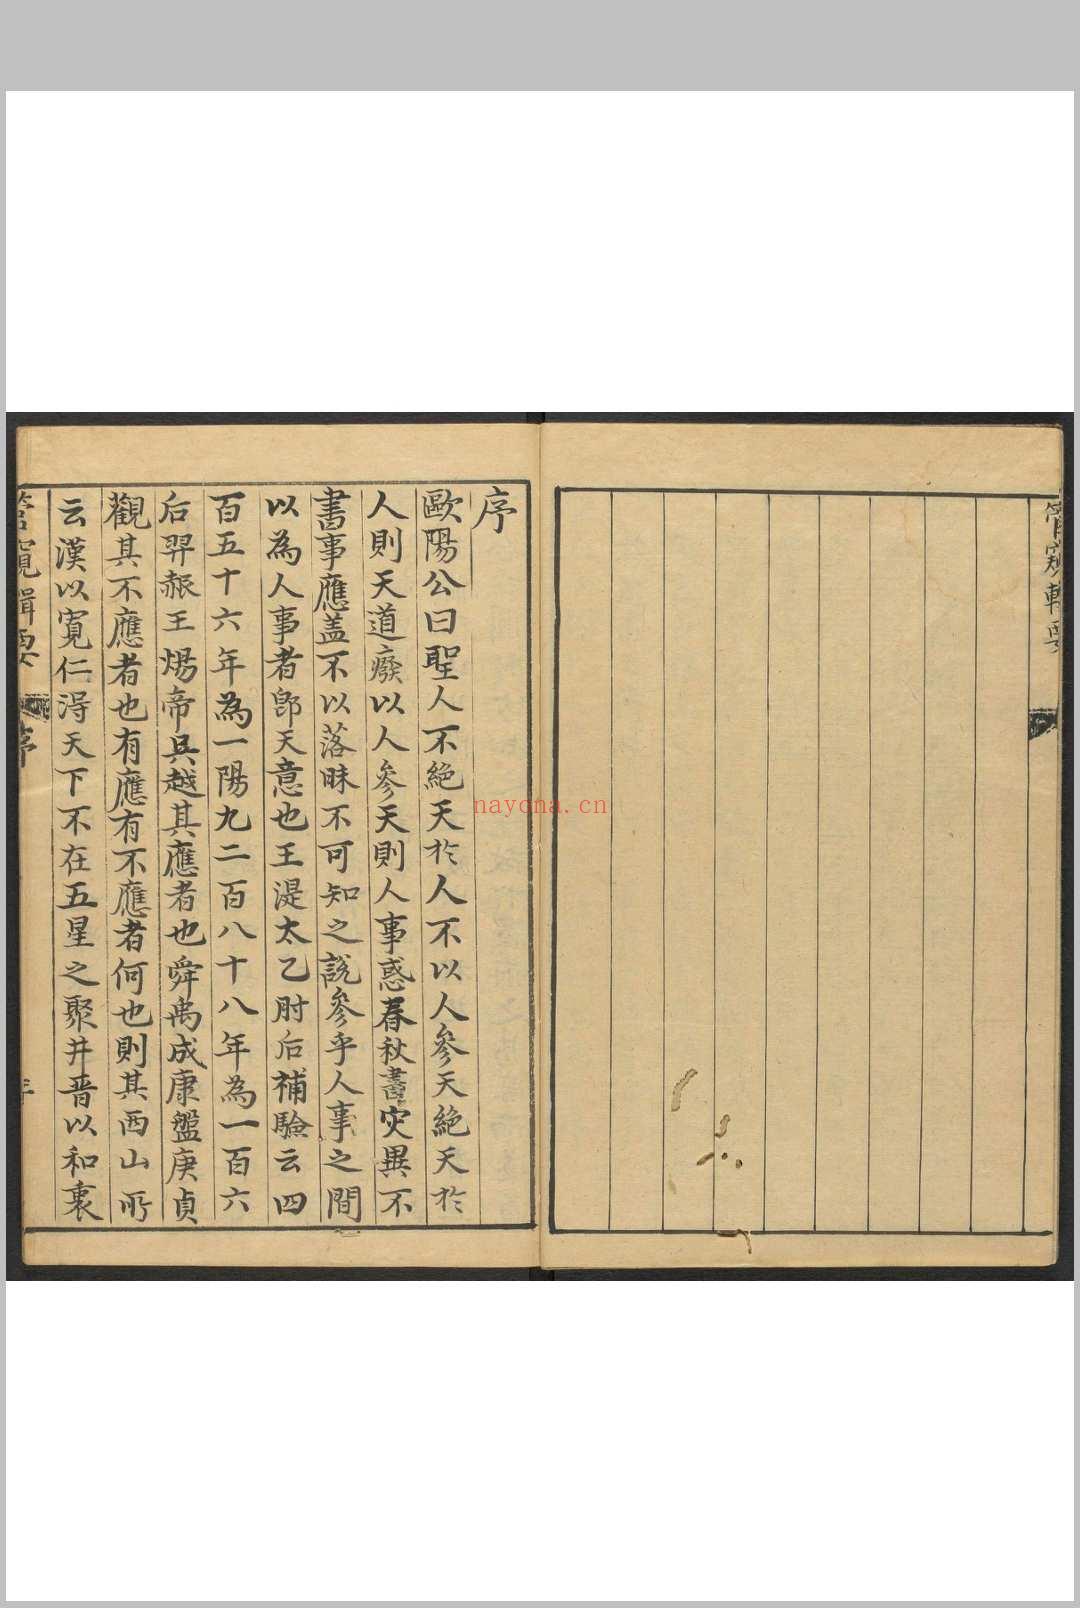 管窺輯要
序
歐陽公曰聖人不絕天於人不以人參天絕天於
人則天道廢以人參天則人事惑春秋書灾異不
書事應盖不以落昧不可知之說參乎人事之間
以為人事者卽天意也王湜太乙肘后補驗云四
百五十六年為一陽九二百八十八年為一百六
后羿赧王煬帝吳越其應者也舜禹成康盤庚貞
觀其不應者也有應有不應者何也則其西山所
云漢以寬仁淂天下不在五星之聚井晋以和衷
管窺輯要
序
nayona.cn